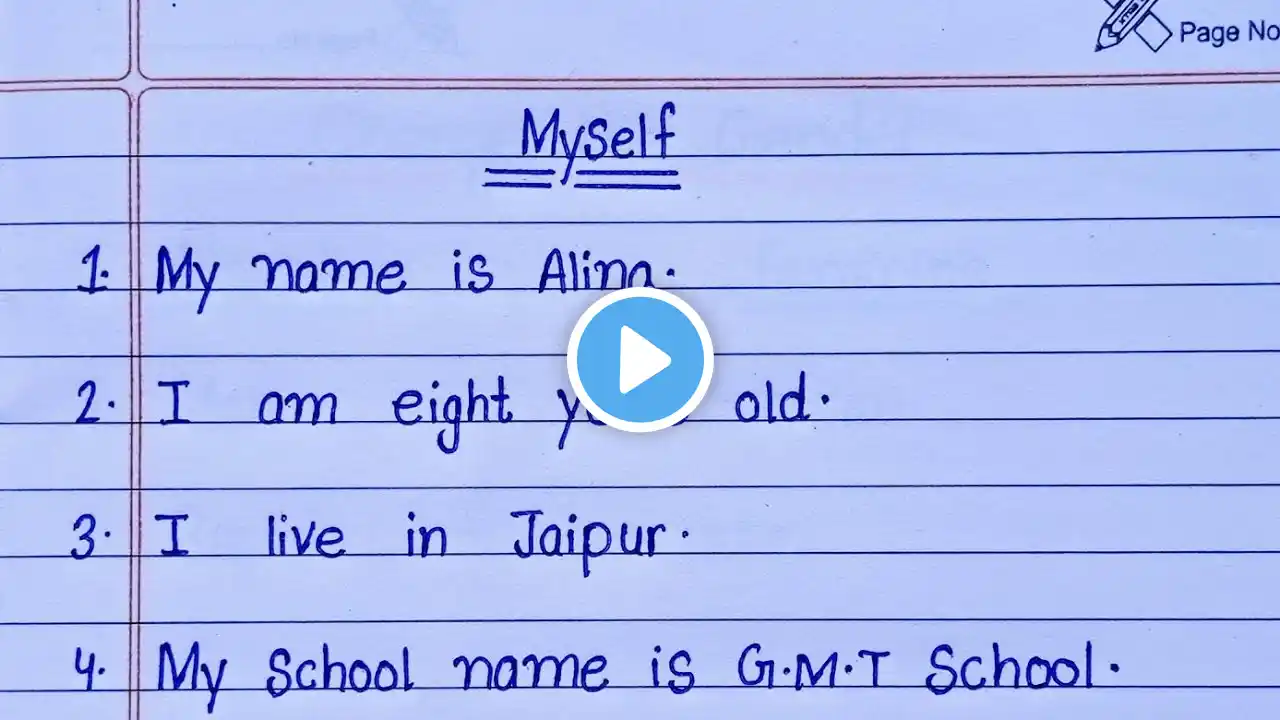 Page No
Myself
1. My name is Alina.
2. I am eight old.
3. I live in Jaipur.
4. My School name is G.M.T School.